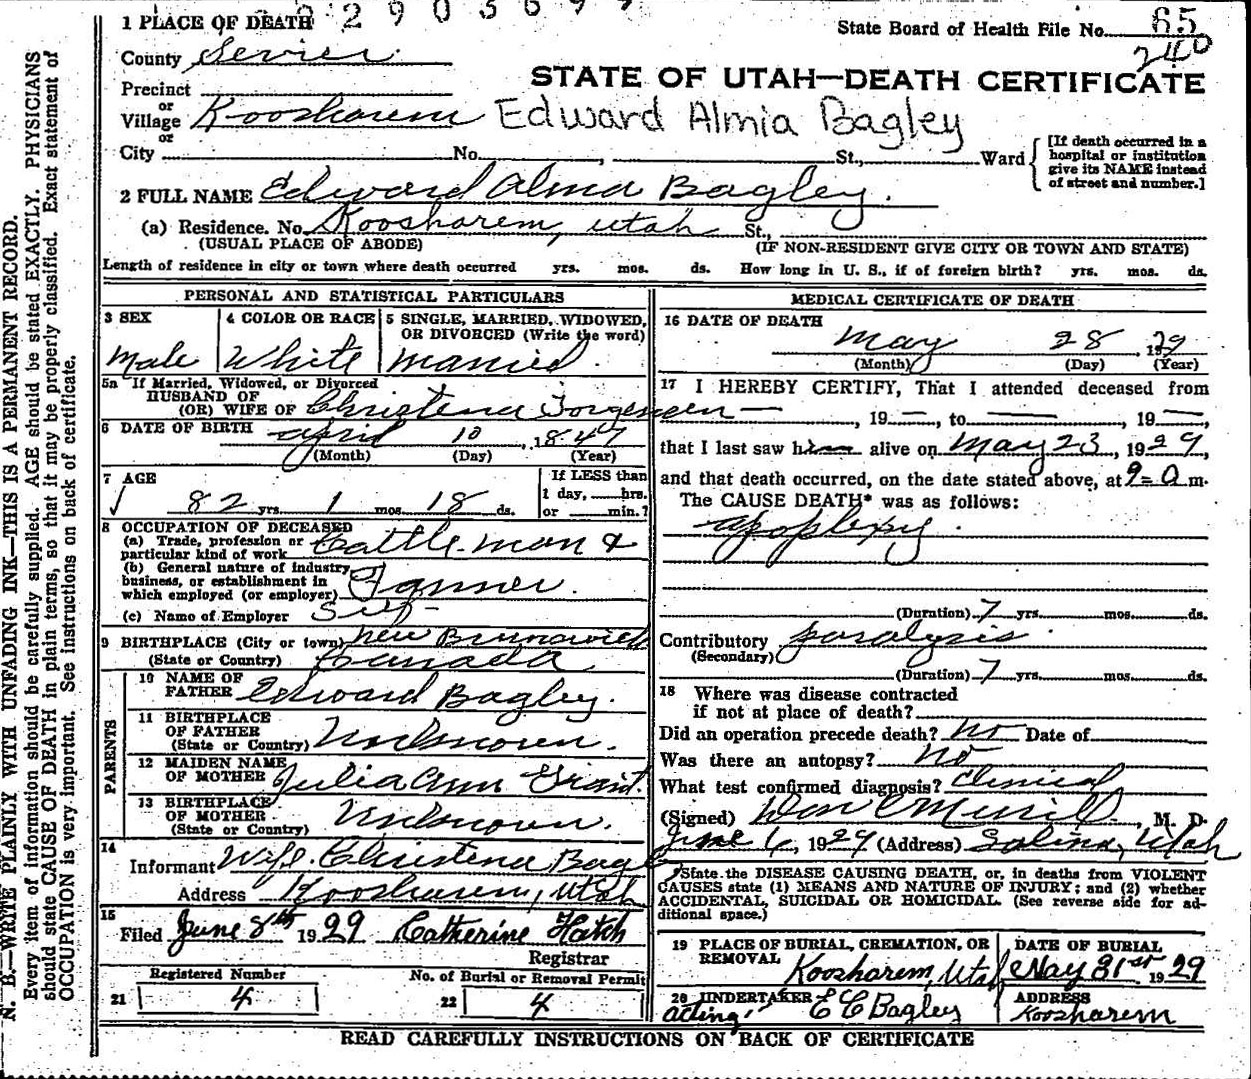 1 PLACE OF DEATH
State Board of Health File No. 65
240
County Sevier
STATE OF UTAH—DEATH CERTIFICATE
Precinct
or
Village Koosharem
Edward Almia Bagley
or
City No. , St., Ward
[If death occurred in a hospital or institution give its NAME instead of street and number.]
2 FULL NAME Edward Alma Bagley.
(a) Residence. No. Koosharem, Utah St.,
(USUAL PLACE OF ABODE) (IF NON-RESIDENT GIVE CITY OR TOWN AND STATE)
Length of residence in city or town where death occurred yrs. mos. ds. How long in U. S., if of foreign birth? yrs. mos. ds.
PERSONAL AND STATISTICAL PARTICULARS
3 SEX
Male
4 COLOR OR RACE
White
5 SINGLE, MARRIED, WIDOWED, OR DIVORCED (Write the word)
Married.
5a If Married, Widowed, or Divorced
HUSBAND OF
(OR) WIFE OF Christena Jorgensen
6 DATE OF BIRTH April 10, 1847
(Month) (Day) (Year)
7 AGE
82 yrs. 1 mos. 18 ds.
If LESS than
1 day, hrs.
or min.?
8 OCCUPATION OF DECEASED
(a) Trade, profession or particular kind of work Cattle-man &
(b) General nature of industry, business, or establishment in which employed (or employer) Farmer.
(c) Name of Employer Self
9 BIRTHPLACE (City or town) New Brunswick
(State or Country) Canada
PARENTS
10 NAME OF FATHER Edward Bagley.
11 BIRTHPLACE OF FATHER (State or Country) Unknown.
12 MAIDEN NAME OF MOTHER Julia Ann Grant.
13 BIRTHPLACE OF MOTHER (State or Country) Unknown.
14
Informant Wife. Christena Bagley
Address Koosharem, Utah
15
Filed June 8th 1929 Catherine Hatch
Registrar
Registered Number
21 4
No. of Burial or Removal Permit
22 4
MEDICAL CERTIFICATE OF DEATH
16 DATE OF DEATH
May 28, 1929
(Month) (Day) (Year)
17 I HEREBY CERTIFY, That I attended deceased from
— , 19 — , to — , 19 —
that I last saw him alive on May 23, 1929,
and that death occurred, on the date stated above, at 9-a m.
The CAUSE DEATH* was as follows:
apoplexy.
(Duration) 7 yrs. mos. ds.
Contributory paralysis.
(Secondary)
(Duration) 7 yrs. mos. ds.
18 Where was disease contracted
if not at place of death?
Did an operation precede death? no Date of
Was there an autopsy? No
What test confirmed diagnosis? Clinical
(Signed) Don C Merrill, M. D.
June 6, 1929 (Address) Salina, Utah
*State the DISEASE CAUSING DEATH, or, in deaths from VIOLENT
CAUSES state (1) MEANS AND NATURE OF INJURY; and (2) whether
ACCIDENTAL, SUICIDAL OR HOMICIDAL. (See reverse side for additional space.)
19 PLACE OF BURIAL, CREMATION, OR REMOVAL
Koosharem, Utah
DATE OF BURIAL
May 31st 1929
20 UNDERTAKER
acting E C Bagley
ADDRESS
Koosharem
READ CAREFULLY INSTRUCTIONS ON BACK OF CERTIFICATE
N. B.—WRITE PLAINLY WITH UNFADING INK—THIS IS A PERMANENT RECORD.
Every item of information should be carefully supplied. AGE should be stated EXACTLY. PHYSICIANS
should state CAUSE OF DEATH in plain terms, so that it may be properly classified. Exact statement of
OCCUPATION is very important. See instructions on back of certificate.